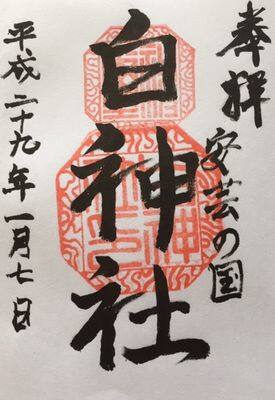 奉拝
安芸の国
白神社
平成二十九年一月七日